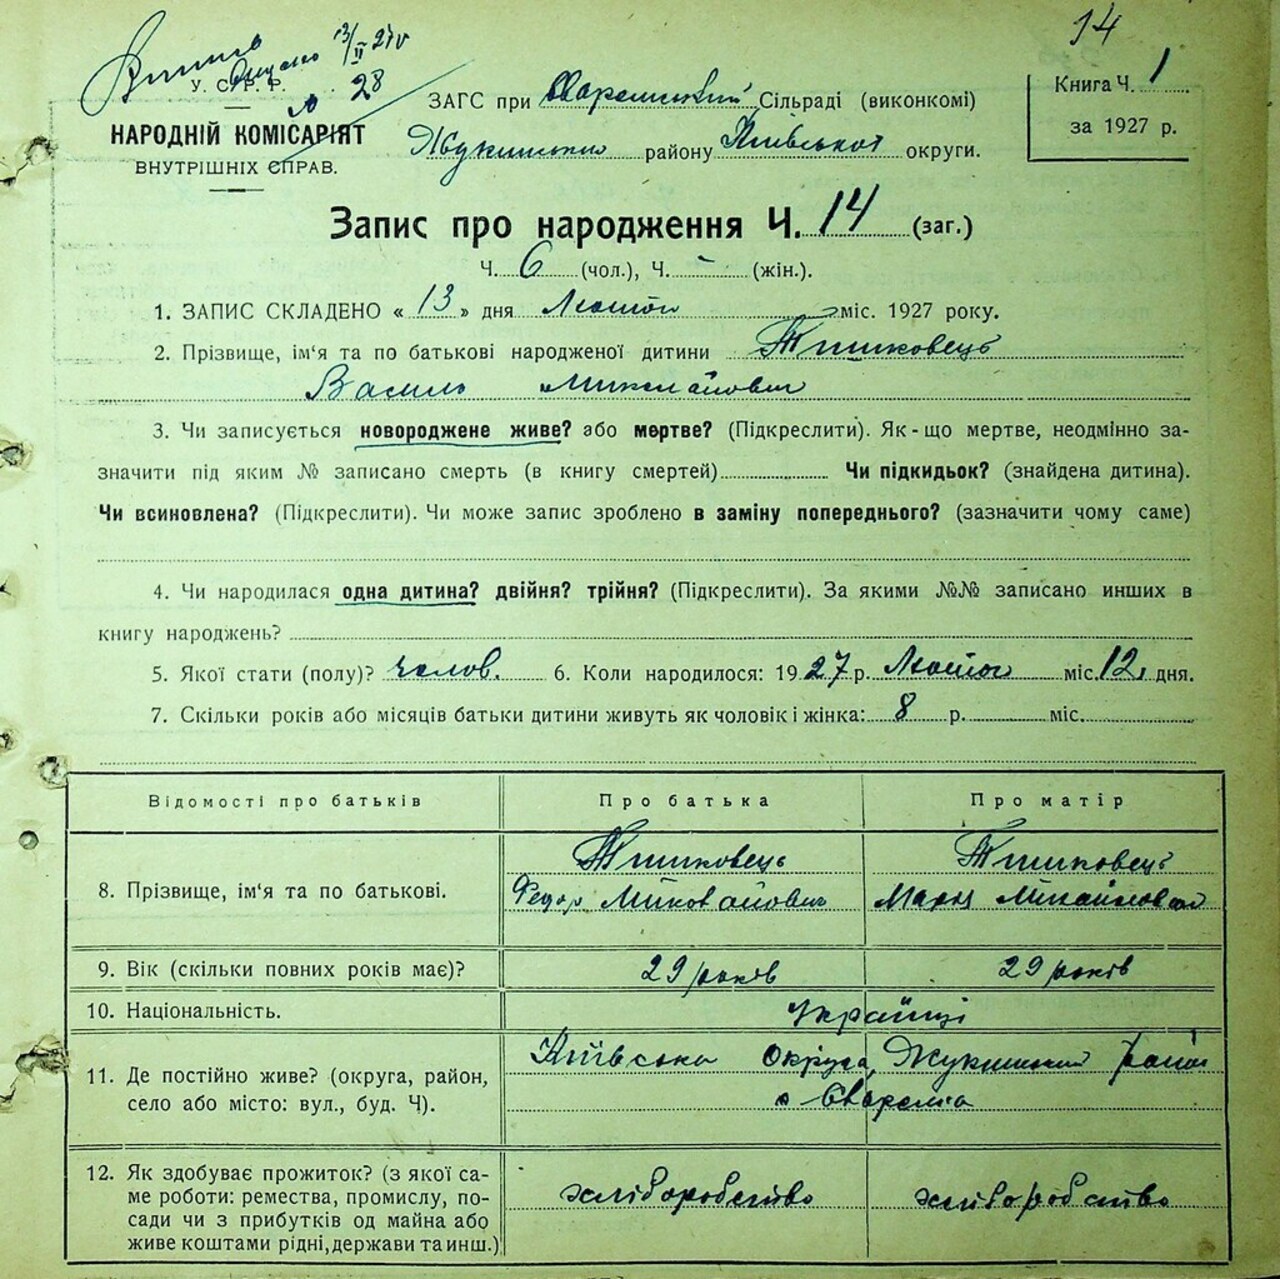 14
Витяг видано 13/II 27 р
№ 28
У. С. Р. Р.
НАРОДНІЙ КОМІСАРІЯТ
ВНУТРІШНІХ СПРАВ.
ЗАГС при Сваромській Сільраді (виконкомі)
Жукинського району Київської округи.
Книга Ч. 1
за 1927 р.
Запис про народження Ч. 14 (заг.)
Ч. 6 (чол.), Ч. - (жін.).
1. ЗАПИС СКЛАДЕНО « 13 » дня Лютого міс. 1927 року.
2. Прізвище, ім'я та по батькові народженої дитини Тишковець
Василь
3. Чи записується новороджене живе? або мертве? (Підкреслити). Як-що мертве, неодмінно за-
значити під яким № записано смерть (в книгу смертей) Чи підкидьок? (знайдена дитина).
Чи всиновлена? (Підкреслити). Чи може запис зроблено в заміну попереднього? (зазначити чому саме)
4. Чи народилася одна дитина? двійня? трійня? (Підкреслити). За якими №№ записано инших в
книгу народжень?
5. Якої стати (полу)? челов. 6. Коли народилося: 1927 р. Лютого міс. 12 дня.
7. Скільки років або місяців батьки дитини живуть як чоловік і жінка: 8 р. міс.
Відомості про батьків Про батька Про матір
Тишковець Тишковець
8. Прізвище, ім'я та по батькові. Федор Миколайович Мария Михайловна
9. Вік (скільки повних років має)? 29 років 29 років
10. Національність. Українці
Київська Округа, Жукинський район
11. Де постійно живе? (округа, район,
село або місто: вул., буд. Ч). с Сваромля
12. Як здобуває прожиток? (з якої са-
ме роботи: ремества, промислу, по- хліборобство хліборобство
сади чи з прибутків од майна або
живе коштами рідні, держави та инш.)